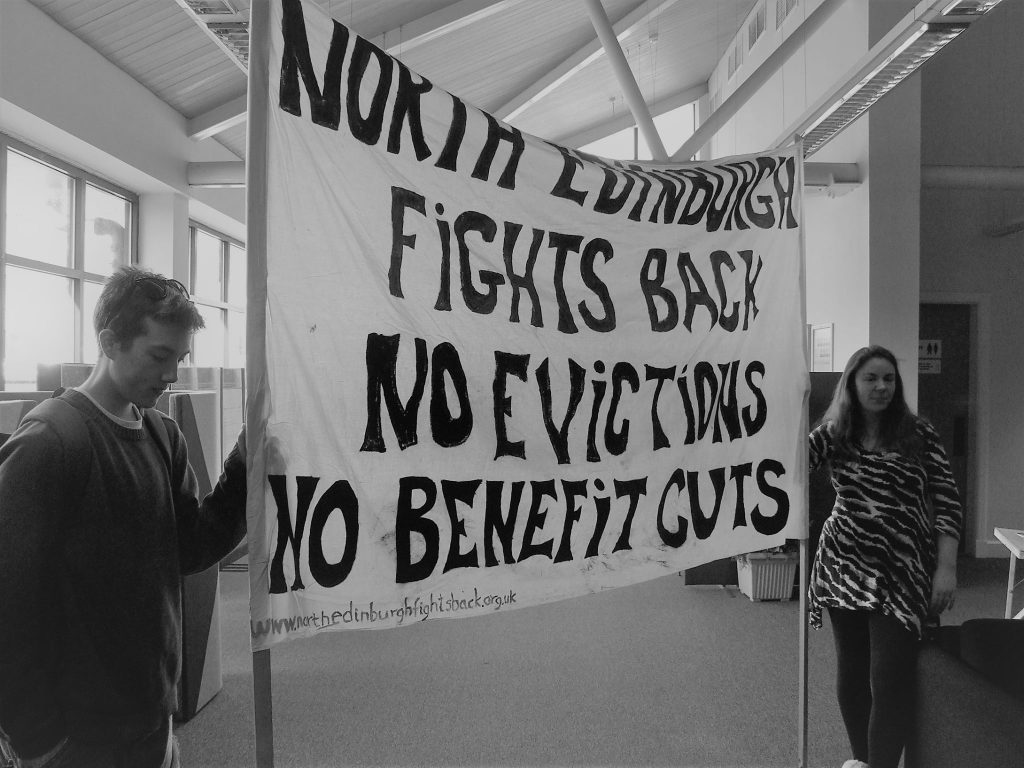 NORTH EDINBURGH
FiGHTS BACK
NO EViCTiONS
NO BENEFiT CUTS
www.northedinburghfightsback.org.uk